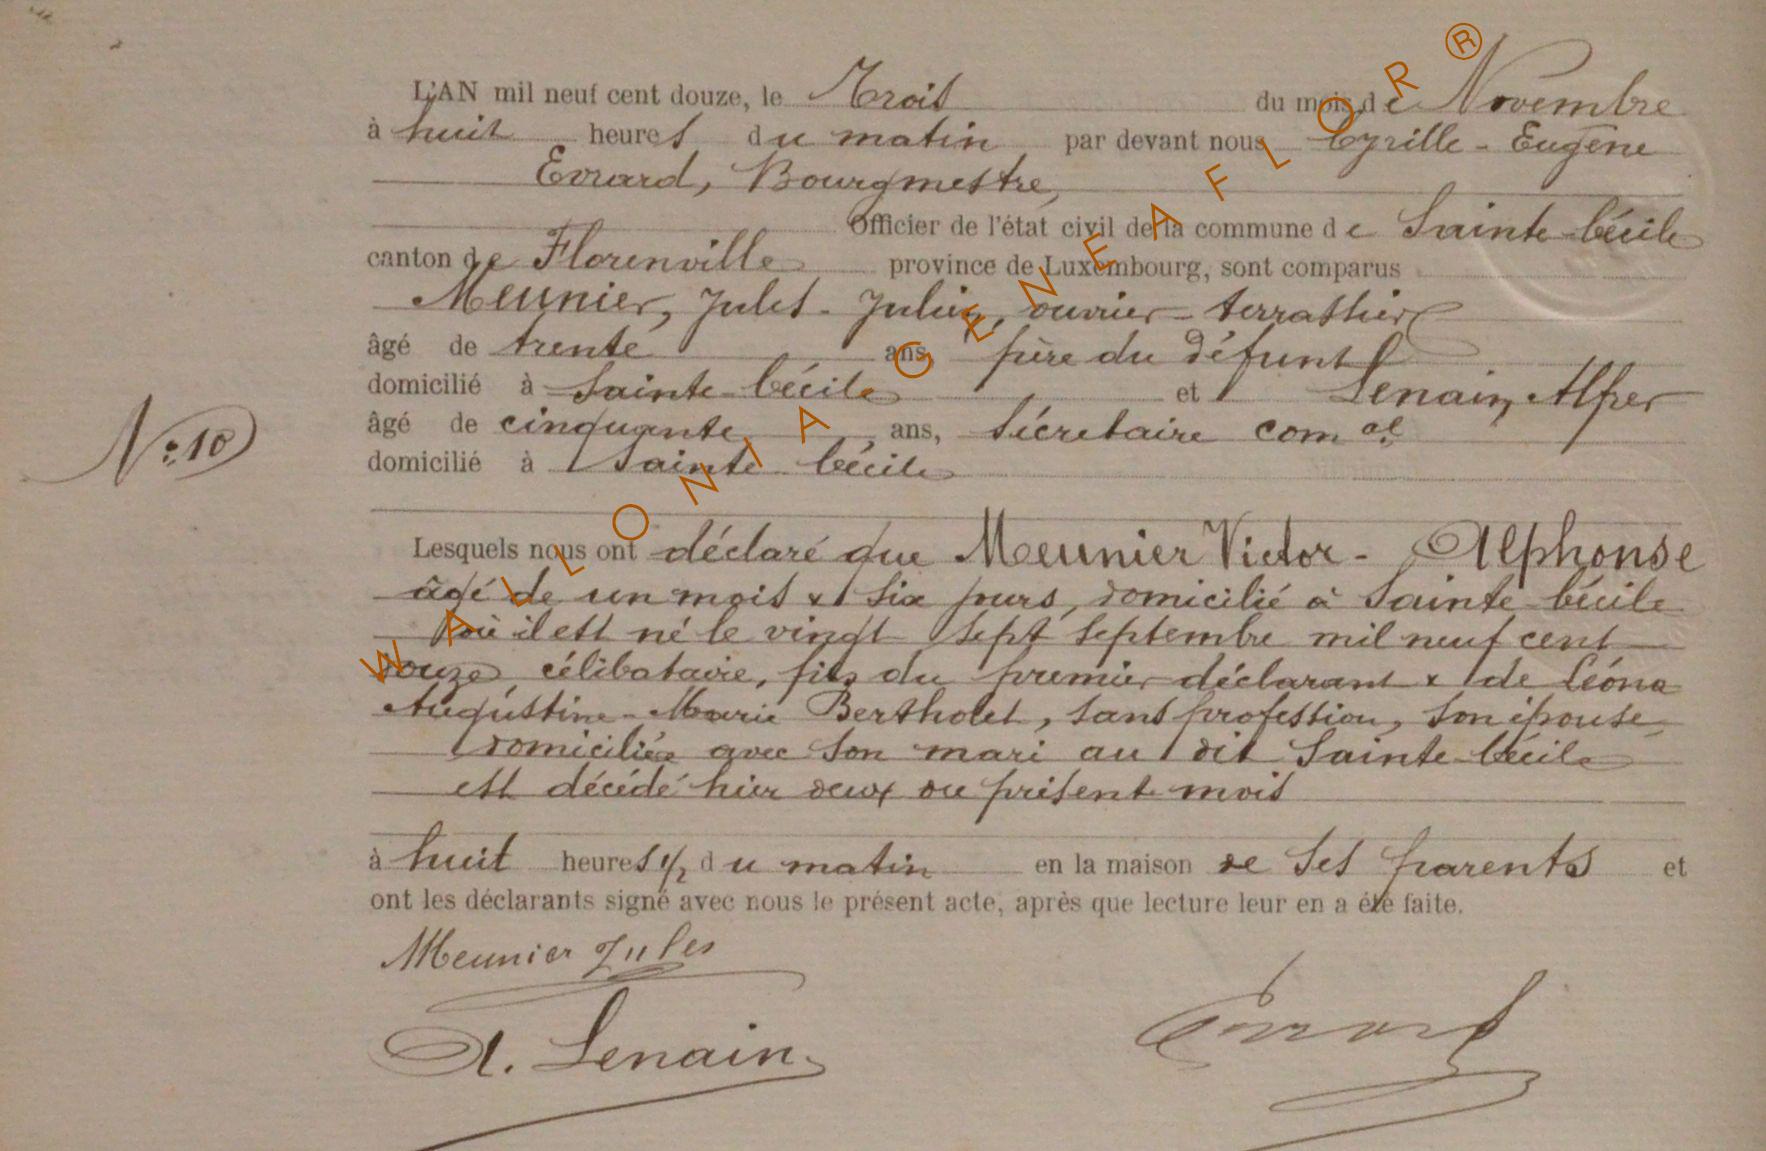 L'AN mil neuf cent douze, le Trois du mois de Novembre
à huit heures du matin par devant nous Cyrille - Eugène
Evrard, Bourgmestre,
Officier de l'état civil de la commune de Sainte-Cécile
canton de Florenville province de Luxembourg, sont comparus
Meunier, Jules - Julien, ouvrier - terrassier
âgé de trente ans père du défunt
domicilié à Sainte-Cécile et Lenain, Alfred
âgé de cinquante ans, Sécretaire com al
domicilié à Sainte Cécile
N° 10
Lesquels nous ont déclaré que Meunier Victor - Alphonse
âgé de un mois & six jours, domicilié à Sainte Cécile
où il est né le vingt sept septembre mil neuf cent
douze célibataire, fils du premier déclarant & de Léona
Augustine - Marie Bertholet, sans profession, son épouse,
domiciliée avec son mari au dit Sainte-Cécile
est décédé hier deux du présent mois
à huit heures 1/2 du matin en la maison de ses parents et
ont les déclarants signé avec nous le présent acte, après que lecture leur en a été faite.
Meunier Jules
A. Lenain
Evrard
WALLONIA GENEAFLOR®